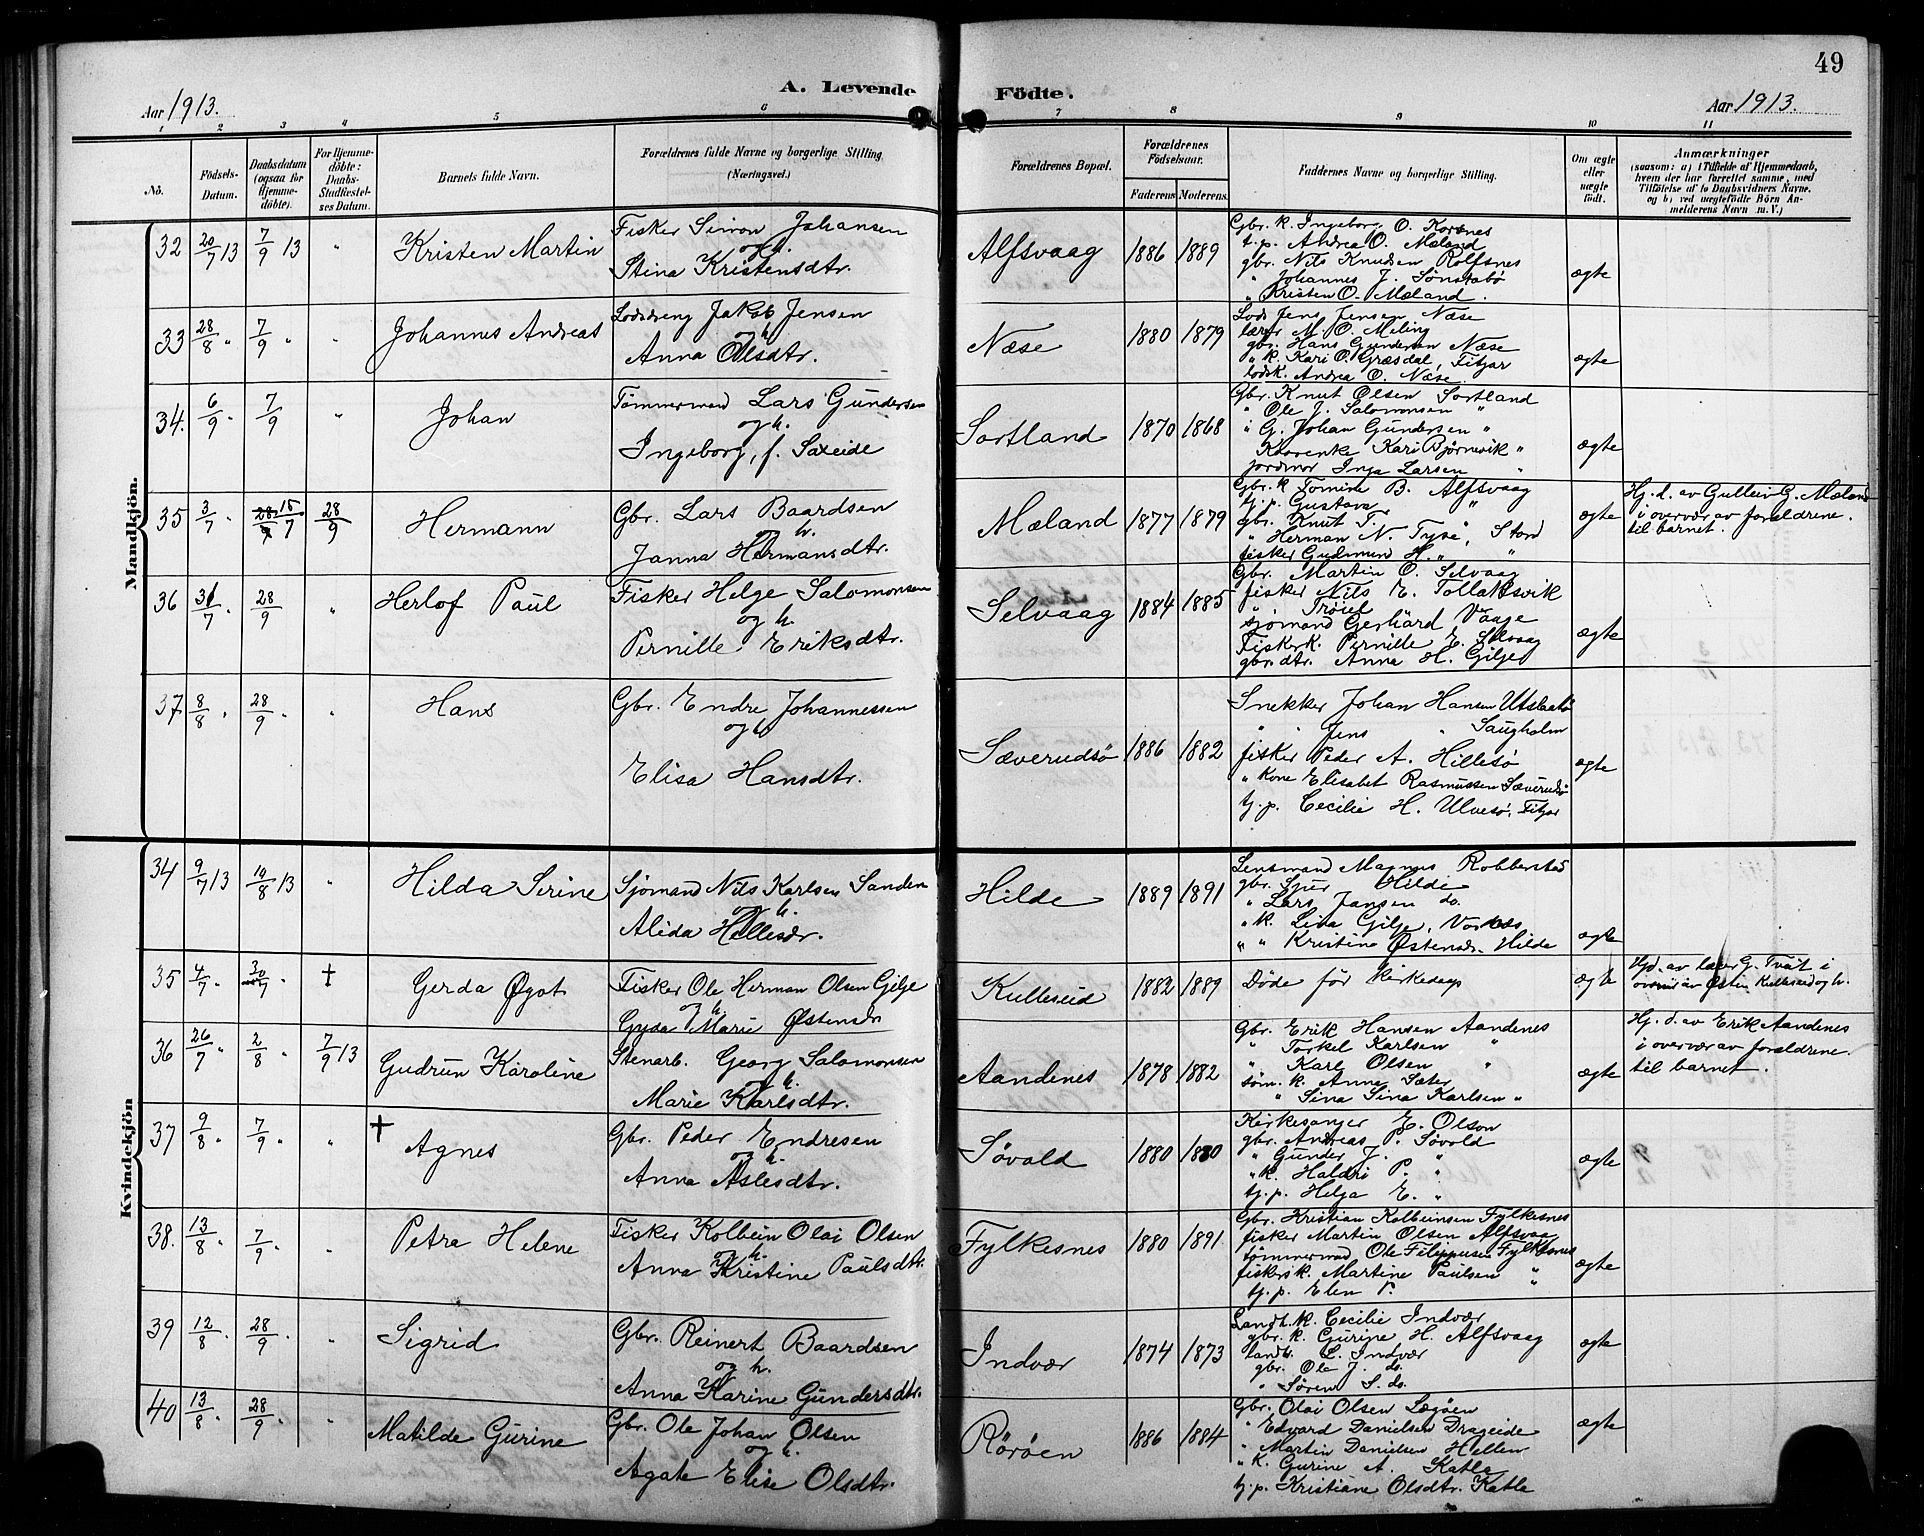 49
A. Levende Födte.
Aar 1913. Aar 1913.
1 2 3 4 5 6 7 8 9 10 11
No. Födsels-Datum. Daabsdatum (ogsaa for Hjemme-döbte). For Hjemme-döbte: Daabs-Stadfæstel-ses Datum. Barnets fulde Navn. Forældrenes fulde Navne og borgerlige Stilling (Næringsvei.) Forældrenes Bopæl. Forældrenes Födselsaar. Faderens Moderens. Faddernes Navne og borgerlige Stilling. Om ægte eller uægte födt. Anmærkninger (saasom: a) i Tilfælde af Hjemmedaab, hvem der har forrettet samme, med Tilföielse af to Daabsvidners Navne, og b) ved uægtefödte Börn An-melderens Navn m. V.)
Mandkjön.
32 20/7 13 7/9 13 " Kristen Martin
Fisker Simon Johansen
og h.
Stina Kristensdtr.
Alfsvaag 1886 1889
Gbr. k. Ingeborg O. Korsnes
t.p. Andrea O. Mæland
gbr. Nils Knudsen Rolfsnes
" Johannes J. Sønstabø
" Kristen O. Mæland.
ægte
33 28/8 " 7/9 " " Johannes Andreas
Lodsdreng Jakob Jensen
og h.
Anna Olsdtr.
Næse 1880 1879
Lods Jens Jensen Næse
lærer M. O. Meling
gbr. Hans Gundersen Næse
" k. Kari O. Græsdal, Fitjar
lodsk. Andrea O. Næse.
ægte
34. 6/9 " 7/9 " Johan
Tømmermand Lars Gundersen
og h.
Ingeborg, f. Saxeide
Sortland 1870 1868
Gbr. Knut Olsen Sortland
" Ole J. Salomonsen "
" G. Johan Gundersen "
Kaarenke Kari Bjørnevik "
jordmor Inga Larsen "
ægte
35 3/7 " 15/7 28/9 Hermann
Gbr. Lars Baardsen
og h.
Janna Hermansdtr.
Mæland 1877 1879
Gbr. k. Tomine B. Alfsvaag
t.p. Gustava "
gbr. Knut T. "
" Herman N. Tyse, Stord
fisker Gudmund H. " "
ægte
Hj. d. av Gullein G. Mæland
i overvær av forældrene
til barnet.
36 31/7 " 28/9 " Herlof Paul
Fisker Helge Salomonsen
og h.
Pernille Eriksdtr.
Selvaag 1884 1885
Gbr. Martin O. Selvaag
fisker Nils E. Tollaksvik
" Trøiel "
sjømand Gerhard Vaage
Fiskerk. Pernille E. Selvaag
gbr.dtr. Anna H. Gilje
ægte
37 8/8 " 28/9 " " Hans
Gbr. Endre Johannessen
og h
Elisa Hansdtr.
Sæverudsø 1886 1882
Snekker Johan Hansen Utslaatø
" Jens " Saugholm
fisker Peder A. Hillesø
" Kone Elisabet Rasmussen Sæverudsø
tj.p. Cecilie H. Ulvesø, Fitjar
ægte
Kvindekjön
34 9/7 13 10/8 13 " Hilda Serine
Sjømand Nils Karlsen Sanden
og h.
Alida Hellesdr.
Hilde 1889 1891
Lensmand Magnus Robberstad
gbr. Sjur Hilde
" Lars Jansen do.
" k. Lina Gilje, Vornes
" " Kristine Østensdr. Hilde
ægte
35 4/7 " 30/7 " † Gerda Øgot
Fisker Ole Herman Olsen Gilje
og h.
Gyda Marie Østensdr
Kulleseid 1882 1889
Døde før kirkedaap
ægte
Hjd. av lærer G. Tvät i
overvær av Østen Kulleseid og h.
36 26/7 " 2/8 " 7/9 13 Gudrun Karoline
Stenarb. Georg Salomonsen
og h.
Marie Karlsdtr.
Aandenes 1878 1882
Gbr. Erik Hansen Aandenes
" Torkel Karlsen "
" Karl Olsen "
søm. k. Anna Sæter
" Sina Sina Karlsen "
ægte
Hj. d. av Erik Aandenes
i overvær av forældrene
til barnet.
37 9/8 " 7/9 " " † Agnes
Gbr. Peder Endresen
og h.
Anna Aslesdtr.
Søvold 1880 1880
Kirkesanger E. Olson
gbr. Andreas P. Søvold
" Gunder J. "
" k. Haldri P. "
tj.p. Helga E. "
ægte
38. 13/8 " 7/9 " Petra Helene
Fisker Kolbein Olai Olsen
og h.
Anna Kristine Paulsdtr.
Fylkesnes 1880 1891
Gbr. Kristian Kolbeinsen Fylkesnes
fisker Martin Olsen Alfsvaag
tømmermand Ole Filippusen Fylkesnes
fiskersk. Martine Paulsen "
tj.p. Elen P. "
ægte
39 12/8 " 28/9 " " Sigrid
Gbr. Reinert Baardsen
og h.
Anna Karine Gundersdtr.
Indvær 1874 1873
Landh. k. Cecilie Indvær
gbr. k. Gurine H. Alfsvaag
landh. L. Indvær
gbr. Ole J. do.
" Søren S. do.
ægte
40 13/8 " 28/9 " " Matilde Gurine
Gbr. Ole Johan Olsen
og h.
Agate Elise Olsdtr.
Rørøen 1886 1884
Gbr. Olai Olsen Lægøen
" Edvard Danielsen Drageide
" Martin Danielsen Hellen
" k. Gurine A. Katla
tj.p. Kristiane Olsdtr. Katla
ægte